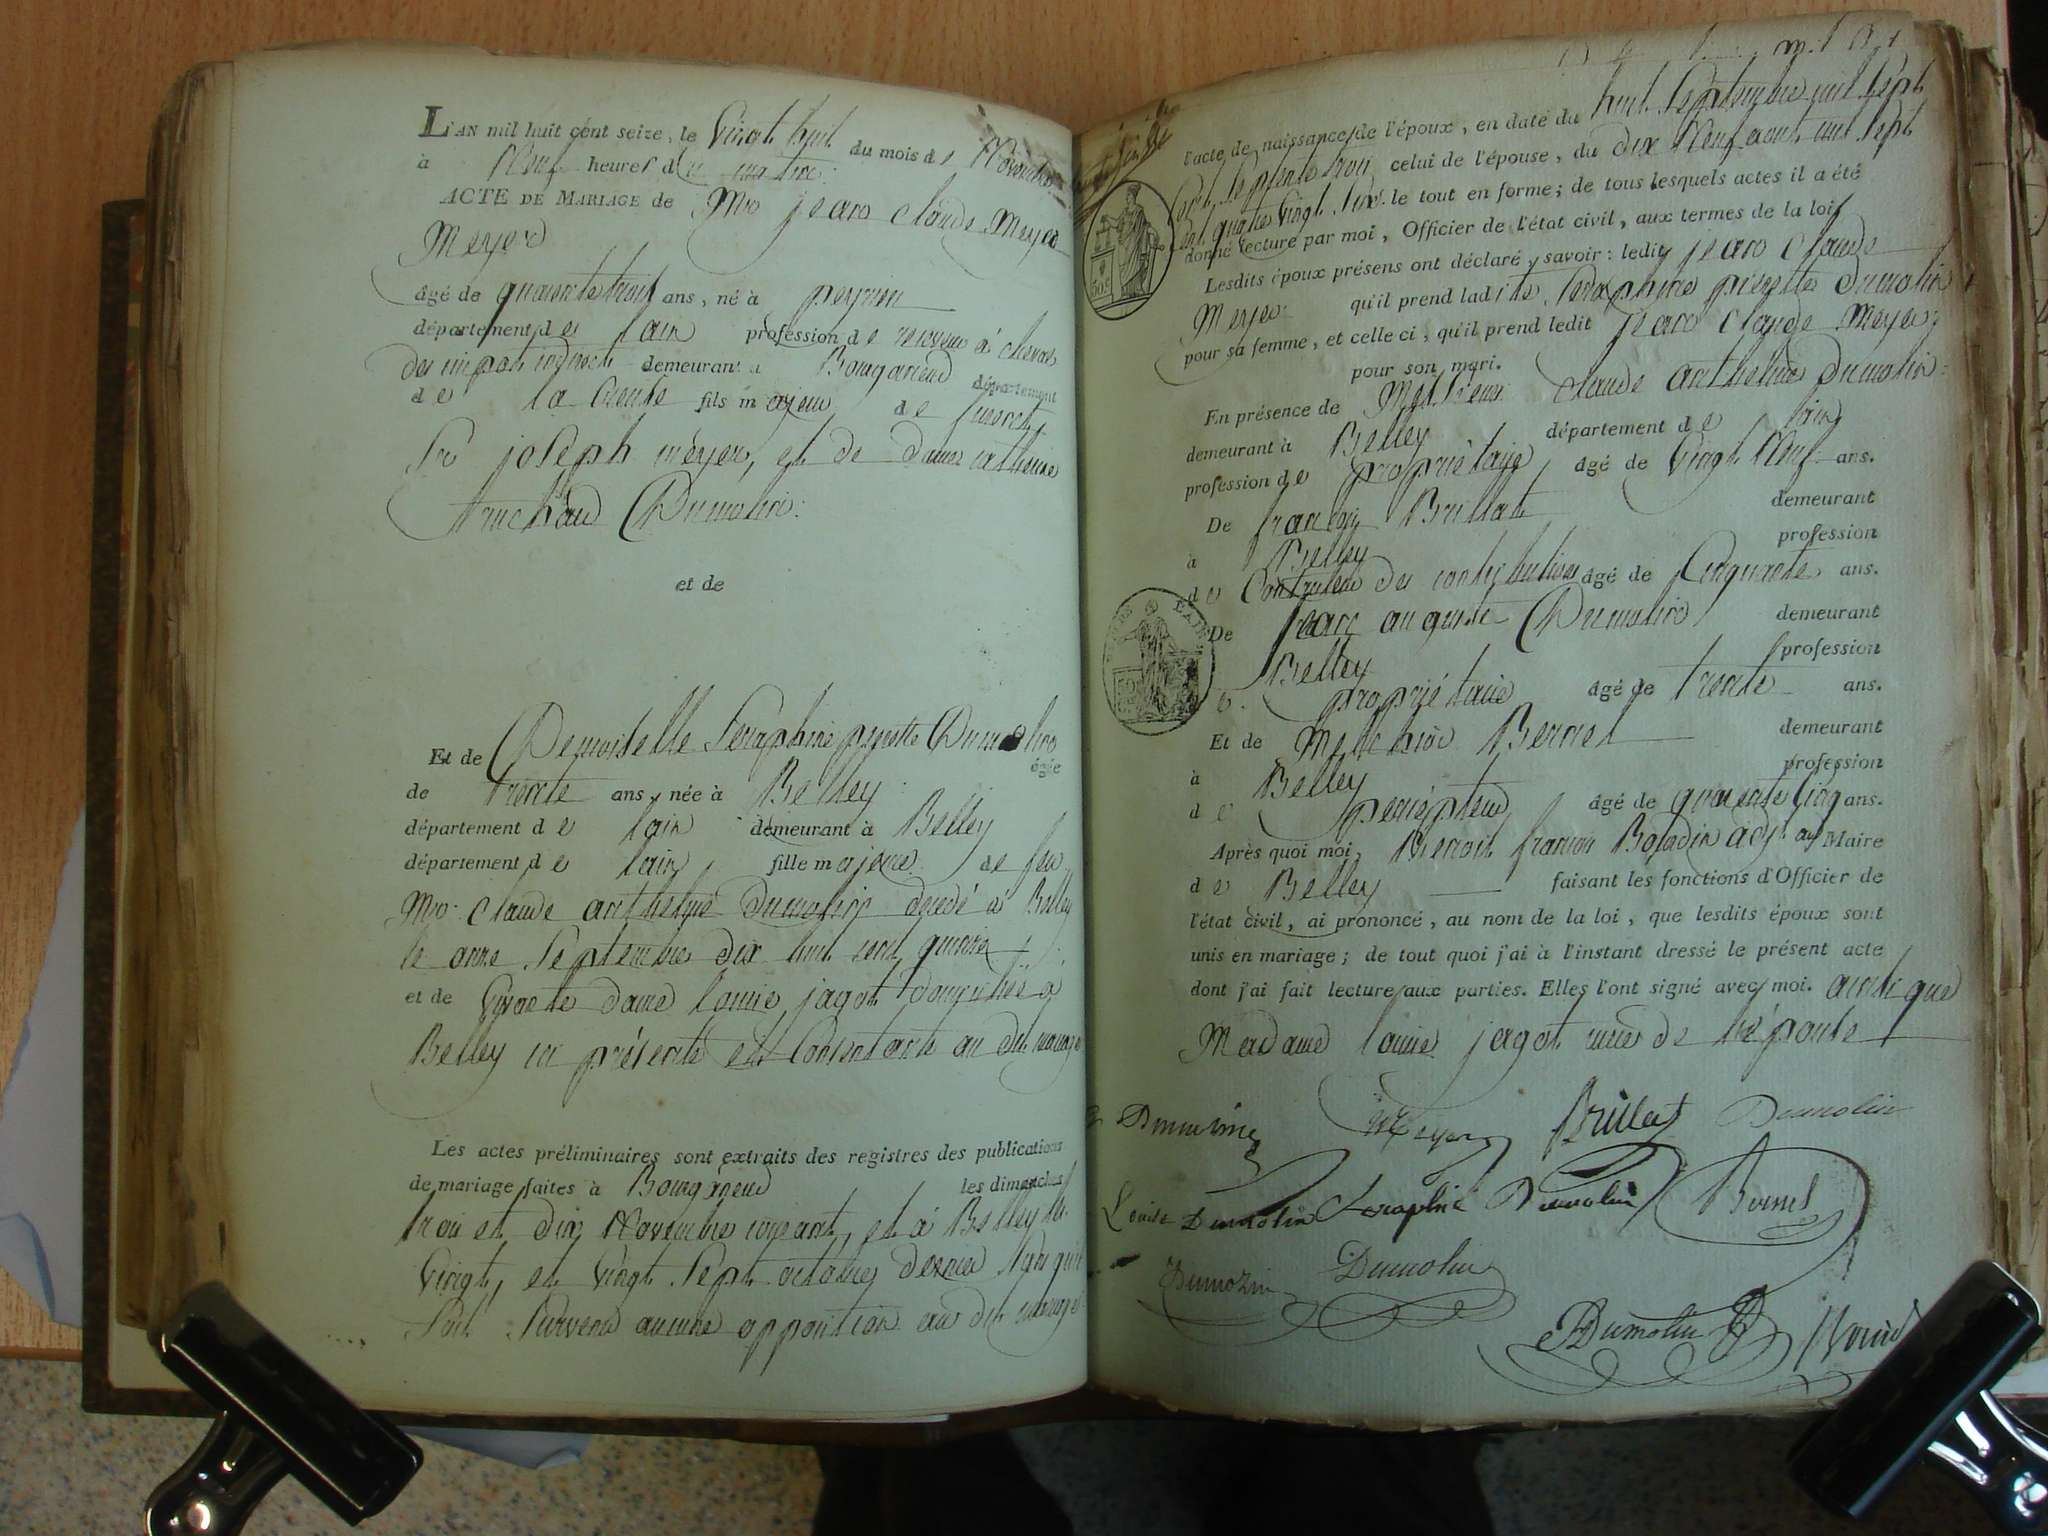 L'AN mil huit cent seize, le Vingt huit du mois de Novembre
à Neuf heures du matin
ACTE DE MARIAGE de Mr jean claude Meyer
Meyer
âgé de quarante trois ans, né à peyrieu
département de l'ain profession de receveur à cheval
des impots indirects demeurant à Bourganeuf département
de la Creuse fils majeur de
Sr joseph méyer, et de dame catherine
Dumolin
et de
Et de Demoiselle Séraphine pierrette Dumolin âgée
de trente ans, née à Belley
département de l'ain demeurant à Belley
département de l'ain fille majeure de feu
Mr claude anthelme Dumolin décédé à Belley
le onze Septembre dix huit cent quinze
et de vivante dame louise jagot domiciliée à
Belley ici présente et Consentante au dit mariage
Les actes préliminaires sont extraits des registres des publications
de mariage faites à Bourganeuf les dimanches
trois et dix Novembre courant, et à Belley les
Vingt, et Vingt Sept octobre dernier sans qu'il
soit Survenu aucune opposition au dit mariage
l'acte de naissance de l'époux, en date du huit Septembre mil sept
cent septente trois celui de l'épouse, du dix Neuf aout mil sept
cent quatre Vingt Six le tout en forme; de tous lesquels actes il a été
donné lecture par moi, Officier de l'état civil, aux termes de la loi.
Lesdits époux présens ont déclaré, savoir: ledit jean claude
Meyer qu'il prend ladite Séraphine pierrette Dumolin
pour sa femme, et celle ci, qu'il prend ledit jean claude Meyer
pour son mari.
En présence de Messieurs claude anthelme Dumolin
demeurant à Belley département de l'ain
profession de propriétaire âgé de Vingt Neuf ans.
De françois Brillat demeurant
à Belley profession
de Controleur des contributions âgé de Cinquante ans.
De jean auguste Dumolin demeurant
Belley profession
propriétaire âgé de trente ans.
Et de Melchior Bernel demeurant
à Belley profession
de percépteur âgé de quarante Cinq ans.
Après quoi moi, Benoit françois adjt au Maire
de Belley faisant les fonctions d'Officier de
l'état civil, ai prononcé, au nom de la loi, que lesdits époux sont
unis en mariage; de tout quoi j'ai à l'instant dressé le présent acte
dont j'ai fait lecture aux parties. Elles l'ont signé avec moi. ainsi que
Madame louise jagot mère de l'épouse
Meyer Brillat Dumolin
Louise Dumolin Séraphine Dumolin Bernel
Dumolin Dumolin
Dumolin